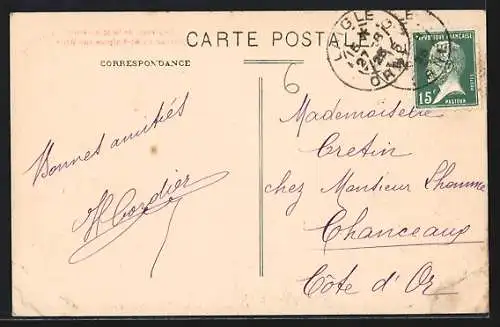 CARTE POSTALE
CORRESPONDANCE
6
LAIGLE
ORNE
REPUBLIQUE FRANÇAISE
15c
POSTES
PASTEUR
Bonnes amitiés
H Cordier
Mademoiselle
Cretin
chez Monsieur Lhomme
Chanceaux
Côte d'Or